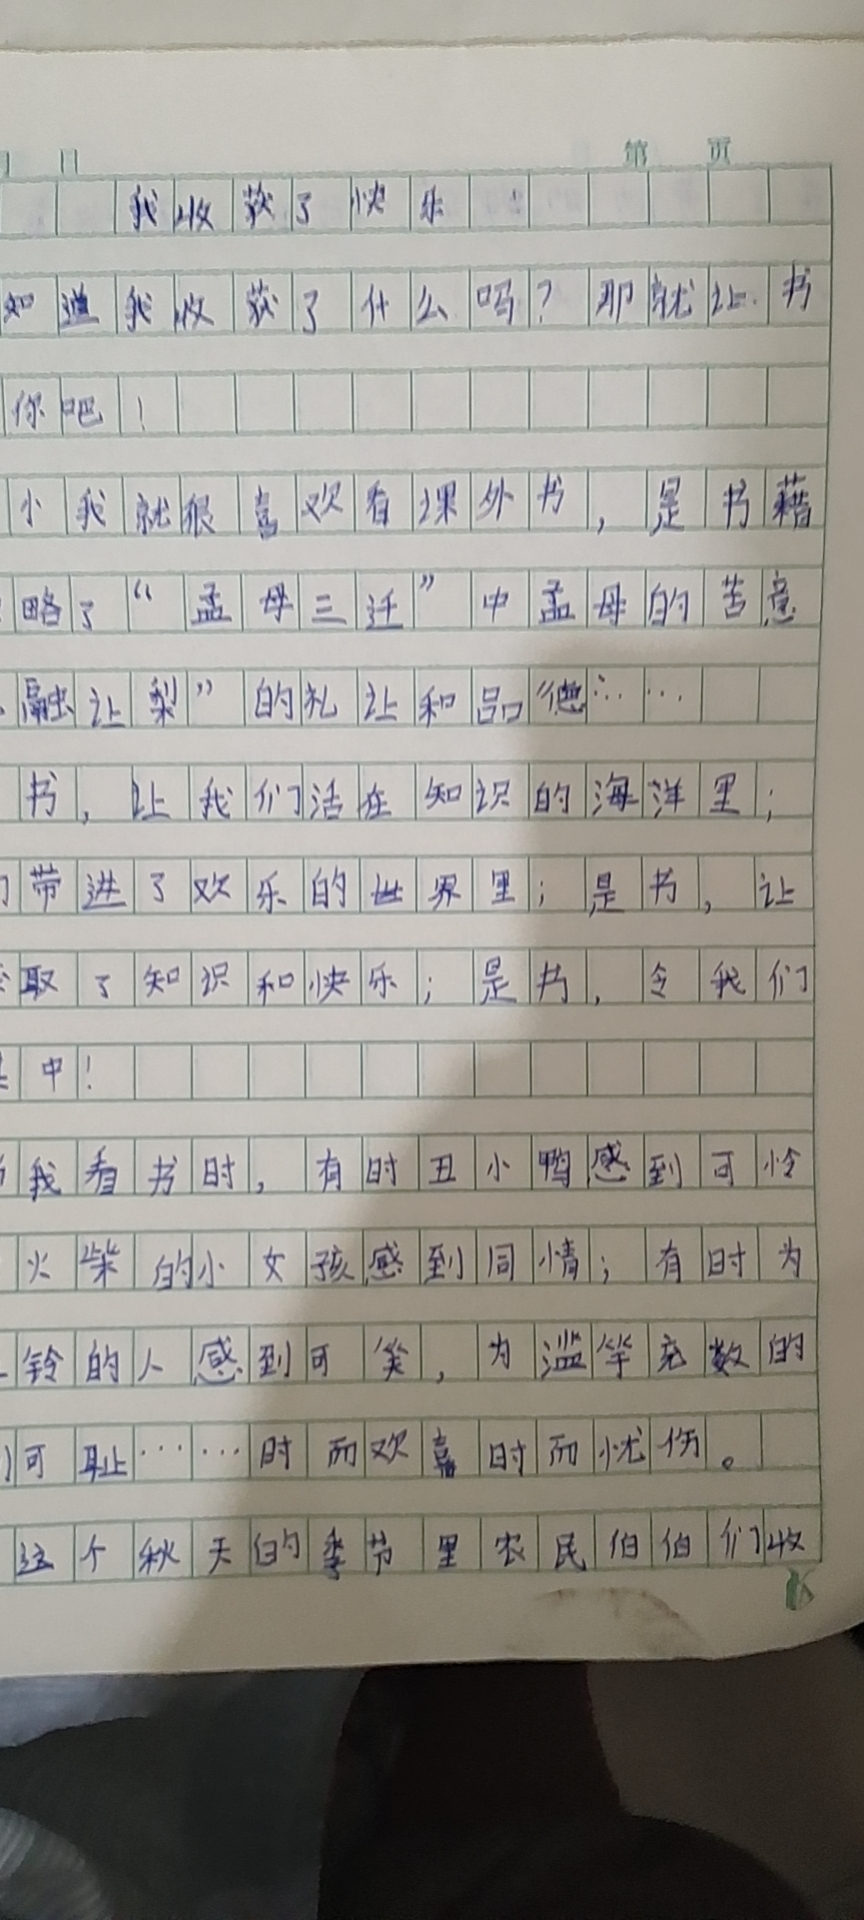 日 第 页
我收获了快乐
知道我收获了什么吗？那就让书
你吧！
小我就很喜欢看课外书，是书藉
略了“孟母三迁”中孟母的苦意
融让梨”的礼让和品德……
书，让我们活在知识的海洋里；
带进了欢乐的世界里；是书，让
取了知识和快乐；是书，令我们
中！
我看书时，有时丑小鸭感到可怜
火柴的小女孩感到同情；有时为
铃的人感到可笑，为滥竽充数的
可耻……时而欢喜时而忧伤。
这个秋天的季节里农民伯伯们收